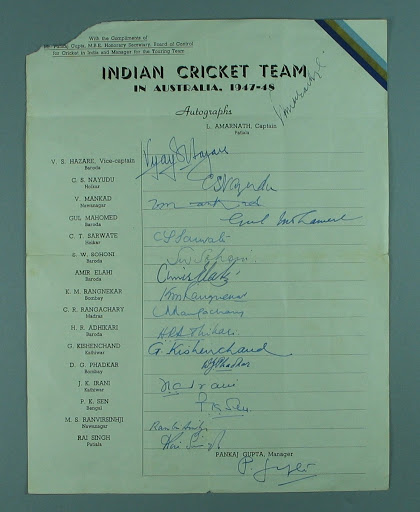 With the Compliments of
Mr. Pankaj Gupta, M.B.E. Honorary Secretary, Board of Control
for Cricket in India and Manager for the Touring Team
INDIAN CRICKET TEAM
IN AUSTRALIA, 1947-48
Autographs
L. AMARNATH, Captain
Patiala
V. S. HAZARE, Vice-captain
Baroda
Vijay S Hazare
C. S. NAYUDU
Holkar
C S Nayudu
V. MANKAD
Nawanagar
GUL MAHOMED
Baroda
Gul Mahomed
C. T. SARWATE
Holkar
C T Sarwate
S. W. SOHONI
Baroda
S W Sohoni
AMIR ELAHI
Baroda
Amir Elahi
K. M. RANGNEKAR
Bombay
K M Rangnekar
C. R. RANGACHARY
Madras
C R Rangachary
H. R. ADHIKARI
Baroda
H R Adhikari
G. KISHENCHAND
Kathiwar
G Kishenchand
D. G. PHADKAR
Bombay
D G Phadkar
J. K. IRANI
Kathiwar
P. K. SEN
Bengal
P K Sen
M. S. RANVIRSINHJI
Nawanagar
Ranvirsinhji
RAI SINGH
Patiala
Rai Singh
PANKAJ GUPTA, Manager
P. Gupta